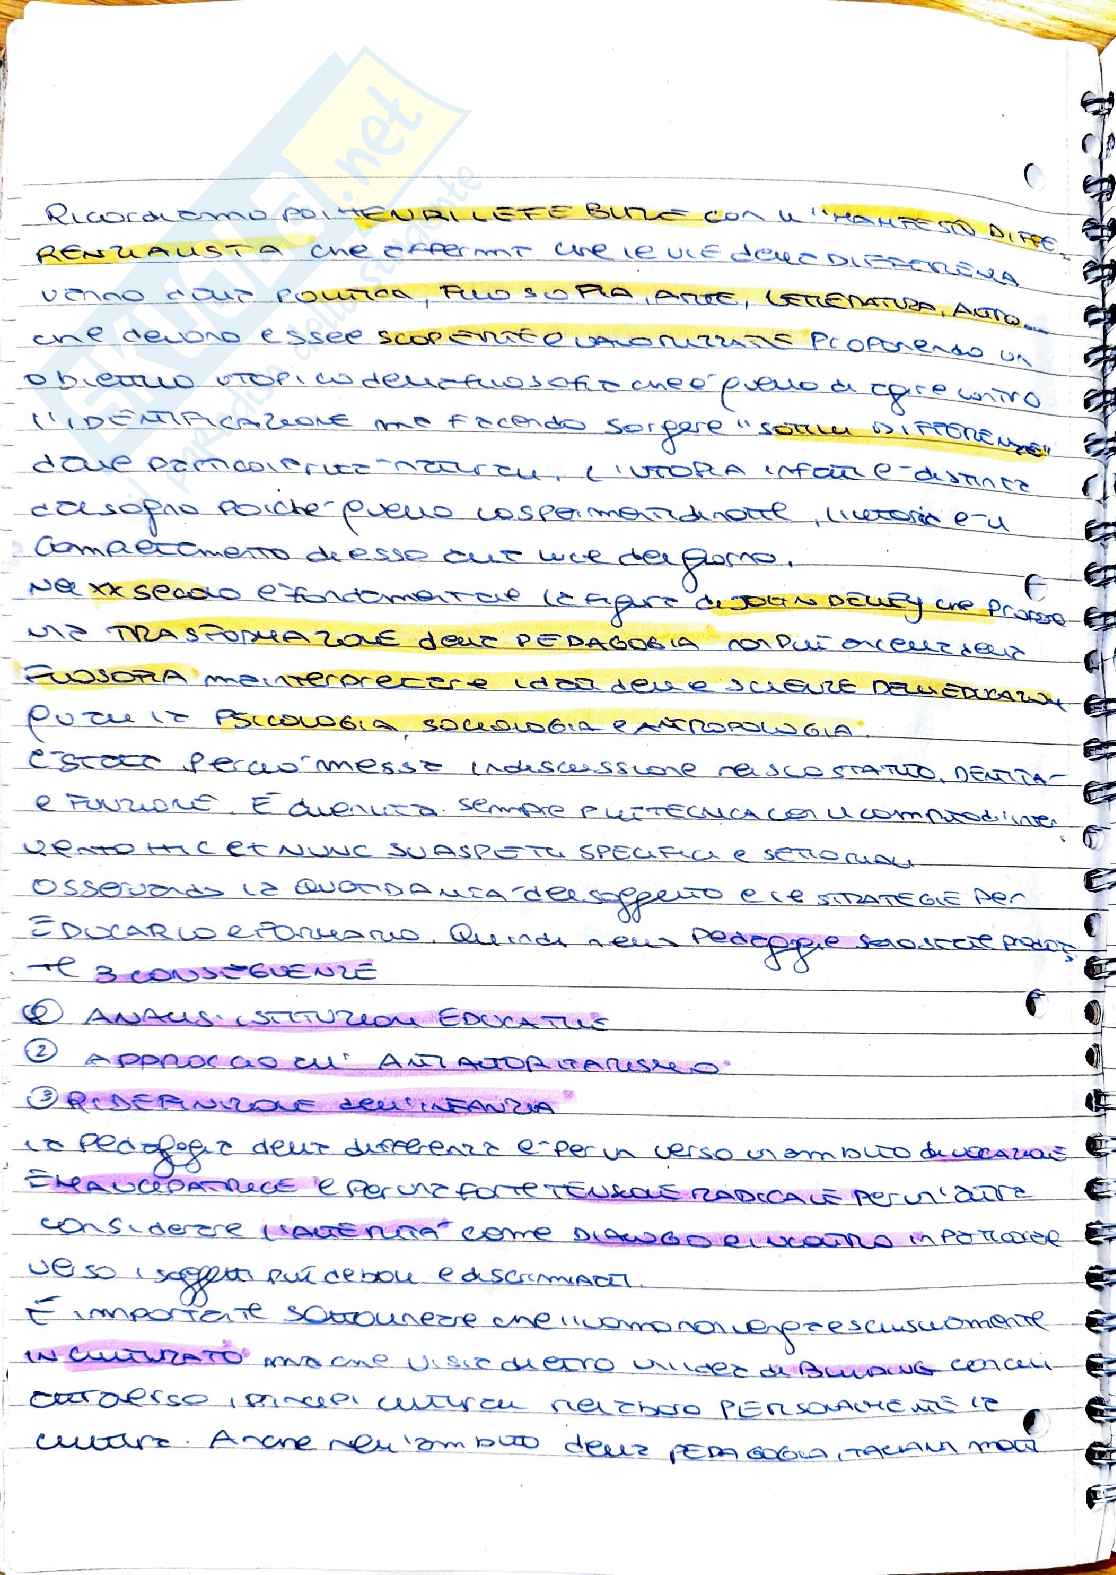 Skuola.net
il paradiso dello studente
Ricordiamo poi HENRI LEFEBURE con il "MANIFESTO DIFFE
RENZIALISTA che afferma che le vie della DIFFERENZA
vanno dalla POLITICA, FILOSOFIA, ARTE, LETTERATURA, ALTRO...
che devono essere SCOPERTE e VALORIZZATE proponendo un
obiettivo utopico della filosofia che è quello di agire contro
l'IDENTIFICAZIONE ma facendo sorgere "SOTTILI DIFFERENZE"
dalle particolarità naturali. L'UTOPIA infatti è distinta
dal sogno poiché quello lo sperimenti di notte, l'utopia è il
compimento di esso alla luce del giorno.
Nel XX secolo è fondamentale la figura di JOHN DEWEY che propone
una TRASFORMAZIONE della PEDAGOGIA non più ancella della
FILOSOFIA ma interprete idea delle SCIENZE DELL'EDUCAZION
quali la PSICOLOGIA, SOCIOLOGIA e ANTROPOLOGIA.
È stata perciò messa in discussione nel suo STATUTO, IDENTITÀ
e FUNZIONE. È diventata sempre più TECNICA con il compito di inter
vento HIC et NUNC SU ASPETTI SPECIFICI e SETTORIALI
osservando la QUOTIDIANITÀ del soggetto e le STRATEGIE per
EDUCARLO e FORMARLO. Quindi nella pedagogia sono state prodot
te 3 CONSEGUENZE
① ANALISI ISTITUZIONI EDUCATIVE
② APPROCCIO ALL'ANTIAUTORITARISMO
③ RIDEFINIZIONE dell'INFANZIA
La pedagogia della differenza è per un verso un ambito di VOCAZIONE
EMANCIPATRICE e per una forte TENSIONE RADICALE per un'altra
considerare l'ALTERITÀ come DIALOGO e INCONTRO in particolare
verso i soggetti più deboli e discriminati.
È importante sottolineare che l'uomo non venga esclusivamente
INCULTURATO ma che vi sia dietro un'idea di BUILDING con cui
attraverso i principi culturali rielabora PERSONALMENTE la
cultura. Anche nell'ambito della PEDAGOGIA ITALIANA molti